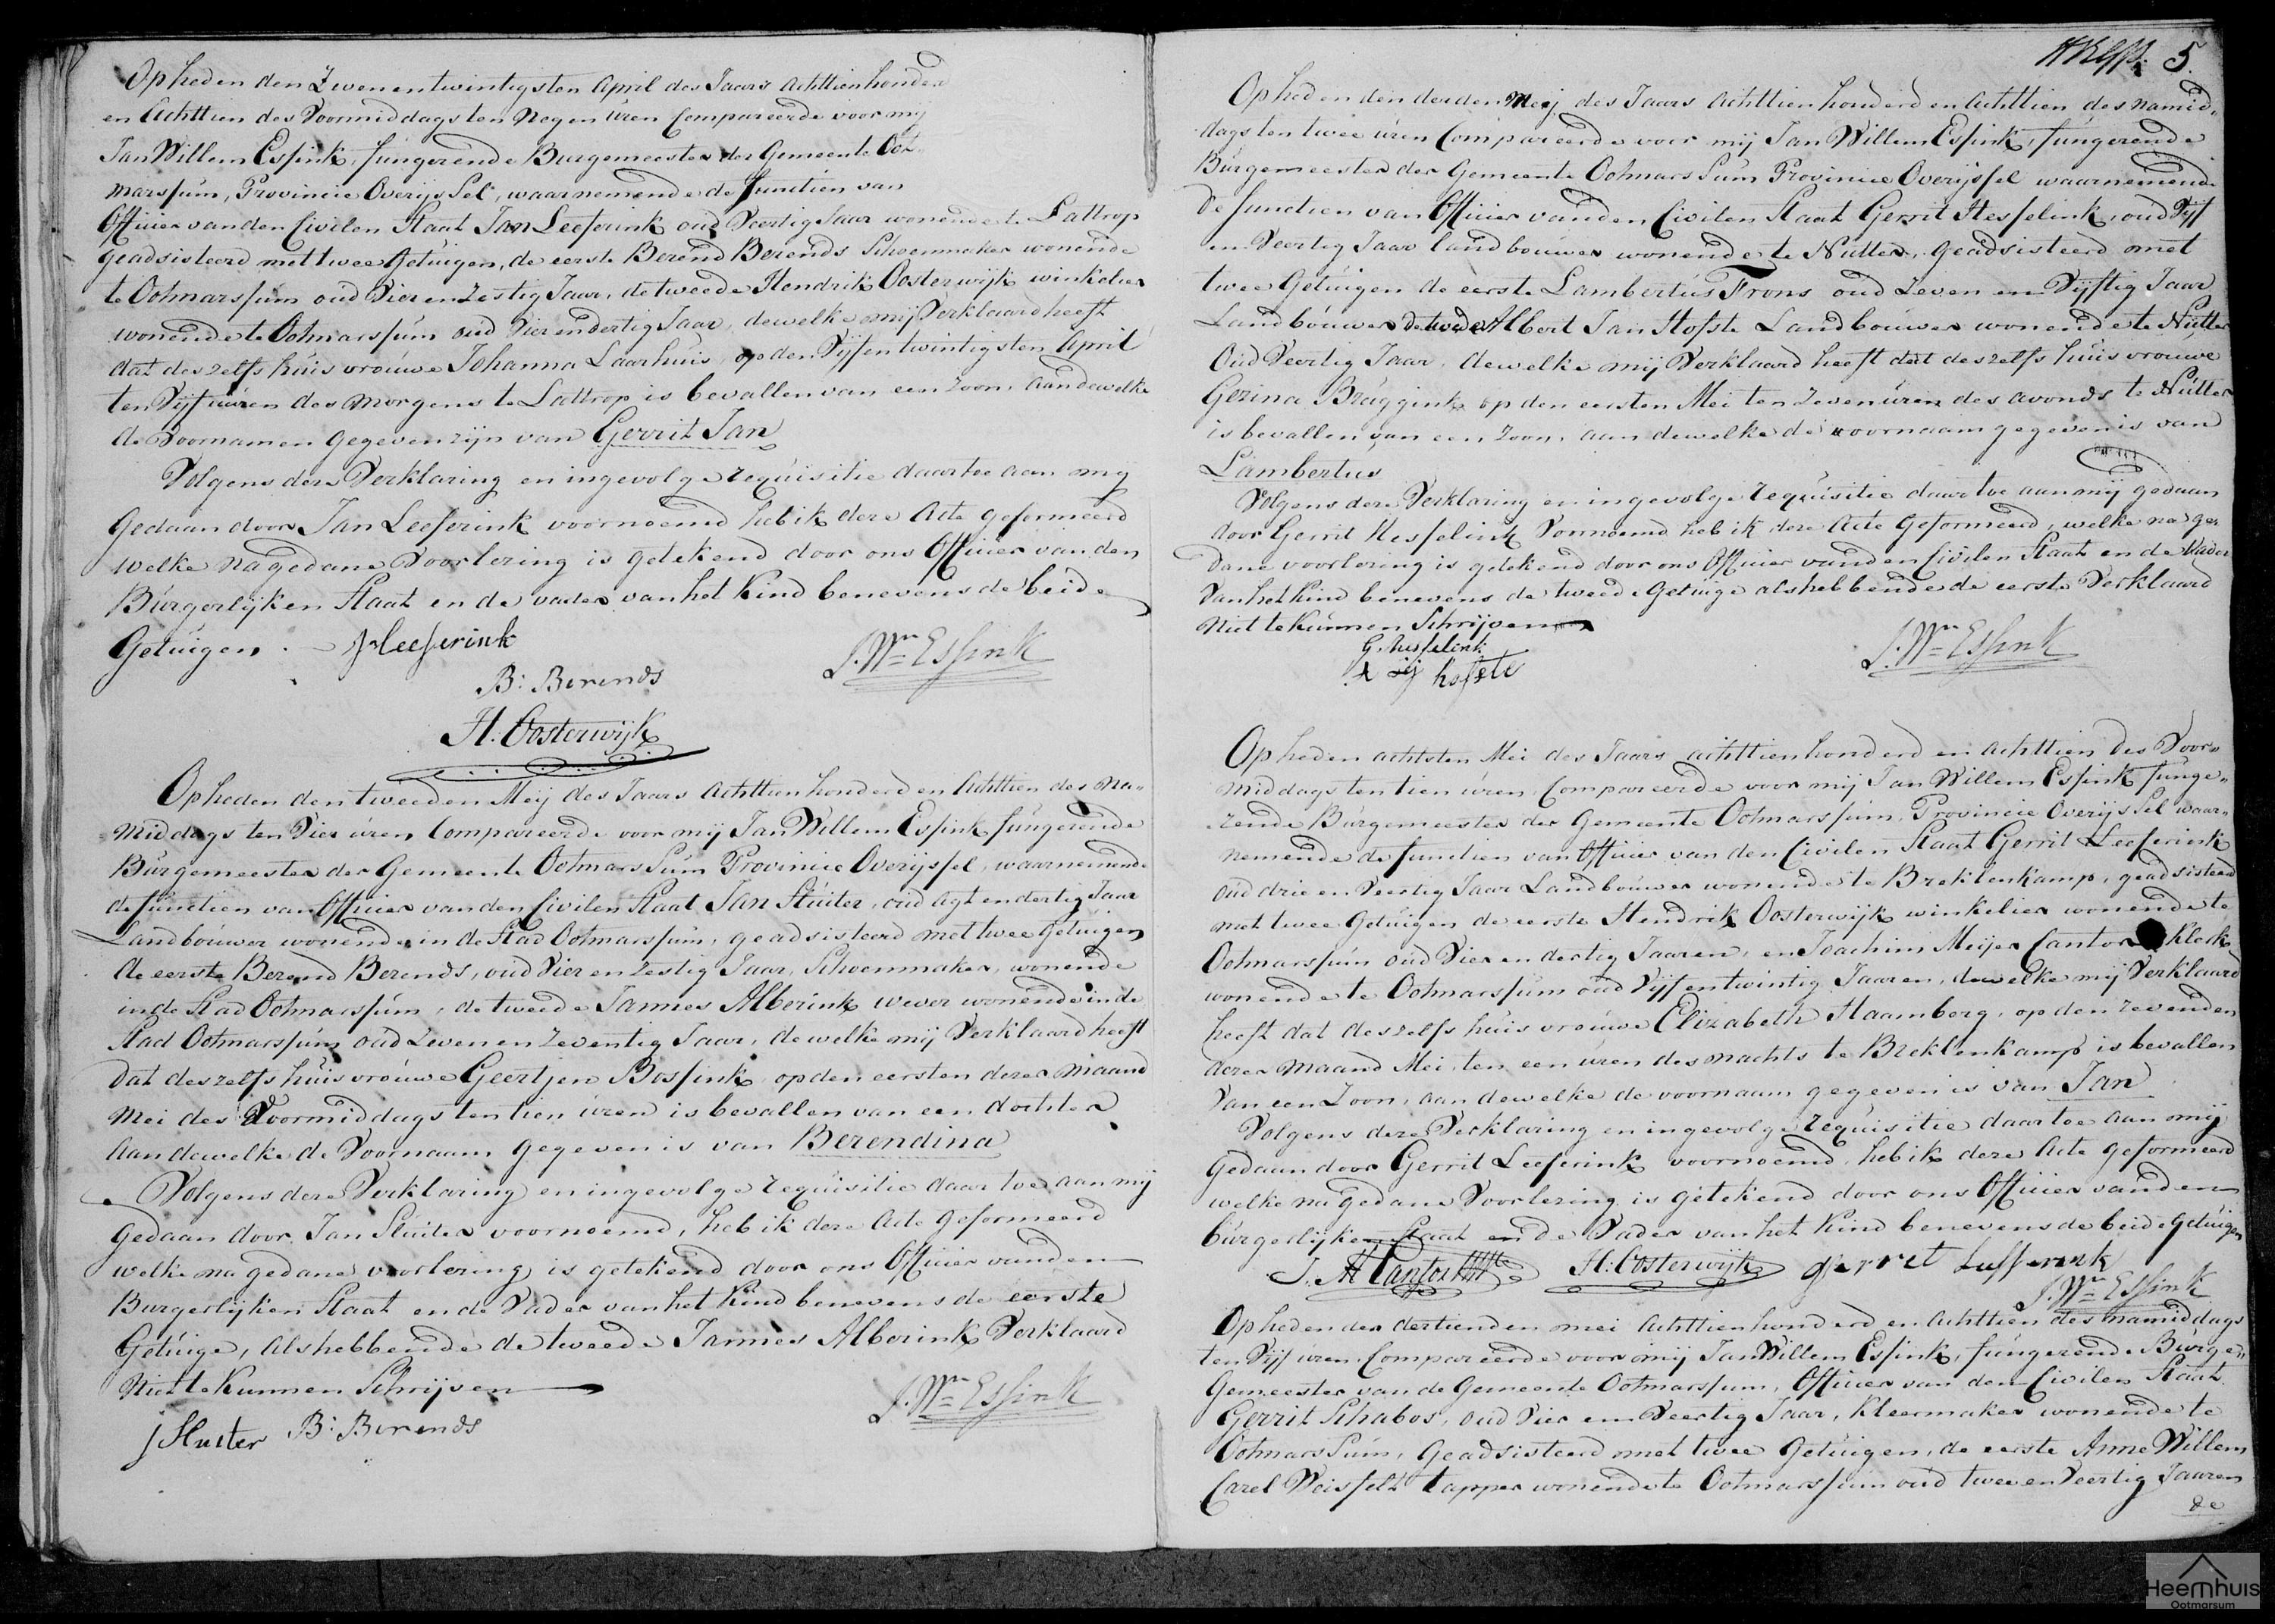 Op heden den Zevenentwintigsten April des Jaars Achttienhonderd
en Achttien des Voormiddags ten Negen úren Compareerde voor mij
Jan Willem Essink, fungerende Burgemeester der Gemeente Oot-
marssum, Provincie OverijsSel, waarnemende de functien van
Officier van den Civilen Staat Jan Leeferink oud Veertig Jaar wonende te Lattrop
geadsisteerd met twee Getuigen, de eerste Berend Berends Schoenmaker wonende
te Ootmarssum oud Vier en Zestig Jaar, de tweede Hendrik Oosterwijk winkelier
wonende te Ootmarssum oud Vier en dertig Jaar, dewelke mij Verklaard heeft
dat deszelfs húisvroúwe Johanna Laarhuis, op den Vijfentwintigsten April
ten Vijf uúren des Morgens te Lattrop is bevallen van een Zoon, aan dewelke
de Voornamen gegeven zijn van Gerrit Jan
Volgens deze Verklaring en ingevolge requisitie daartoe aan mij
Gedaan door Jan Leeferink voornoemd heb ik deze Acte geformeerd
welke na gedane Voorlezing is getekend door ons Officier van den
Búrgerlijken Staat en de vader van het Kind benevens de beide
Getúigen. J Leeferink
B: Berends
J. Wm Essink
H. Oosterwijk
Op heden den tweeden Meij des Jaars Achttienhonderd en Achttien des Na-
middags ten Vier úren Compareerde voor mij Jan Willem Essink fungerende
Búrgemeester der Gemeente OotmarsSum Provincie Overijssel, waarnemende
de functien van Officier van den Civilen Staat Jan Sluiter, oud Agt en dertig Jaar
Landboúwer wonende in de Stad Ootmarssum, geadsisteerd met twee Getuigen
de eerste Berend Berends, oud Vier en Zestig Jaar, Schoenmaker, wonende
in de Stad Ootmarssum, de tweede Jannes Alberink wever wonende in de
Stad Ootmarssum oud Zeven en Zeventig Jaar, dewelke mij Verklaard heeft
dat deszelfs húisvroúwe Geertjen Bossink, op den eersten dezer Maand
Mei des Voormiddags ten tien úren is bevallen van een dochter
aan dewelke de Voornaam gegeven is van Berendina
Volgens deze Verklaring en ingevolge requisitie daar toe aan mij
gedaan door Jan Sluiter voornoemd, heb ik deze Acte geformeerd
welke na gedane voorlezing is getekend door ons Officier van den
Burgerlijken Staat en de Vader van het Kind benevens de eerste
Getúige, als hebbende de tweede Jannes Alberink Verklaard
Niet te Kunnen Schrijven
J. Wm Essink
J Sluiter B: Berends
5.
Op heden den derden Meij des Jaars Achttien honderd en Achttien des namid-
dags ten twee úren Compareerde voor mij Jan Willem Essink, fungerende
Búrgemeester der Gemeente OotmarsSum Provincie Overijssel waarnemende
de functien van Officier van den Civilen Staat Gerrit Hesselink, oud Vijf
en Veertig Jaar landboúwer wonende te Nutter, geadsisteerd met
twee Getúigen de eerste Lambertús Frons oud Zeven en Vijftig Jaar
Landboúwer de tweede Albert Jan Hofste Landboúwer wonende te Nutter
Oud Veertig Jaar, dewelke mij Verklaard heeft dat deszelfs húisvroúwe
Gezina Brúggink op den eersten Mei ten Zeven úren des avonds te Nútter
is bevallen van een Zoon, aan dewelke de voornaam gegeven is van
Lambertus
Volgens deze Verklaring en ingevolge requisitie daartoe aan mij gedaan
door Gerrit Hesselink Vornoemd heb ik deze Acte Geformeerd, welke na ge-
dane voorlezing is getekend door ons Officier van den Civilen Staat en de Vader
Van het Kind benevens de tweede Getúige als hebbende de eerste Verklaard
Niet te Kúnnen Schrijven
G. Hesselink
A ij hofste
J. Wm Essink
Op heden achtsten Mei des Jaars achttienhonderd en achttien des Voor-
middags ten tien úren, Compareerde voor mij Jan Willem Essink funge-
rende Búrgemeester der Gemeente Ootmarssúm, Provincie OverijsSel waar-
nemende de functien van Officier van den Civilen Staat Gerrit Leeferink
oud drie en Veertig Jaar Landboúwer wonende te Breklenkamp, geadsisteerd
met twee Getúigen de eerste Hendrik Oosterwijk winkelier wonende te
Ootmarssúm oud Vier en dertig Jaaren, en Joachim Meijer Cantor Klerk
wonende te Ootmarssum oud Vijf en twintig Jaaren, dewelke mij Verklaard
heeft dat deszelfs húisvroúwe Elizabeth Haamberg, op den zevenden
dezer Maand Mei, ten een úren des nachts te Breklenkamp is bevallen
Van een Zoon, aan dewelke de voornaam gegeven is van Jan
Volgens deze Verklaring en ingevolge requisitie daartoe aan mij
Gedaan door Gerrit Leeferink voornoemd, heb ik deze Acte geformeerd
welke na gedane Voorlezing is getekend door ons Officier van den
búrgerlijken Staat en de Vader van het Kind benevens de beide Getúigen
J. M Cantor H: Oosterwijk gerret Lefferink
J. Wm Essink
Op heden den dertienden mei Achttienhonderd en Achttien des namiddags
ten Vijf úren Compareerde voor mij Jan Willem Essink, fúngerende Búrge-
Gemeester van de Gemeente Ootmarssum, Officier van den Civilen Staat
Gerrit Schabos, oud Vier en Veertig Jaar, Kleermaker wonende te
OotmarsSúm, Geadsisteerd met twee Getuigen, de eerste Anne Willem
Carel Weisfelt tapper wonende te Ootmarssum oud twee en Veertig Jaaren
de
Heemhuis
Ootmarsum